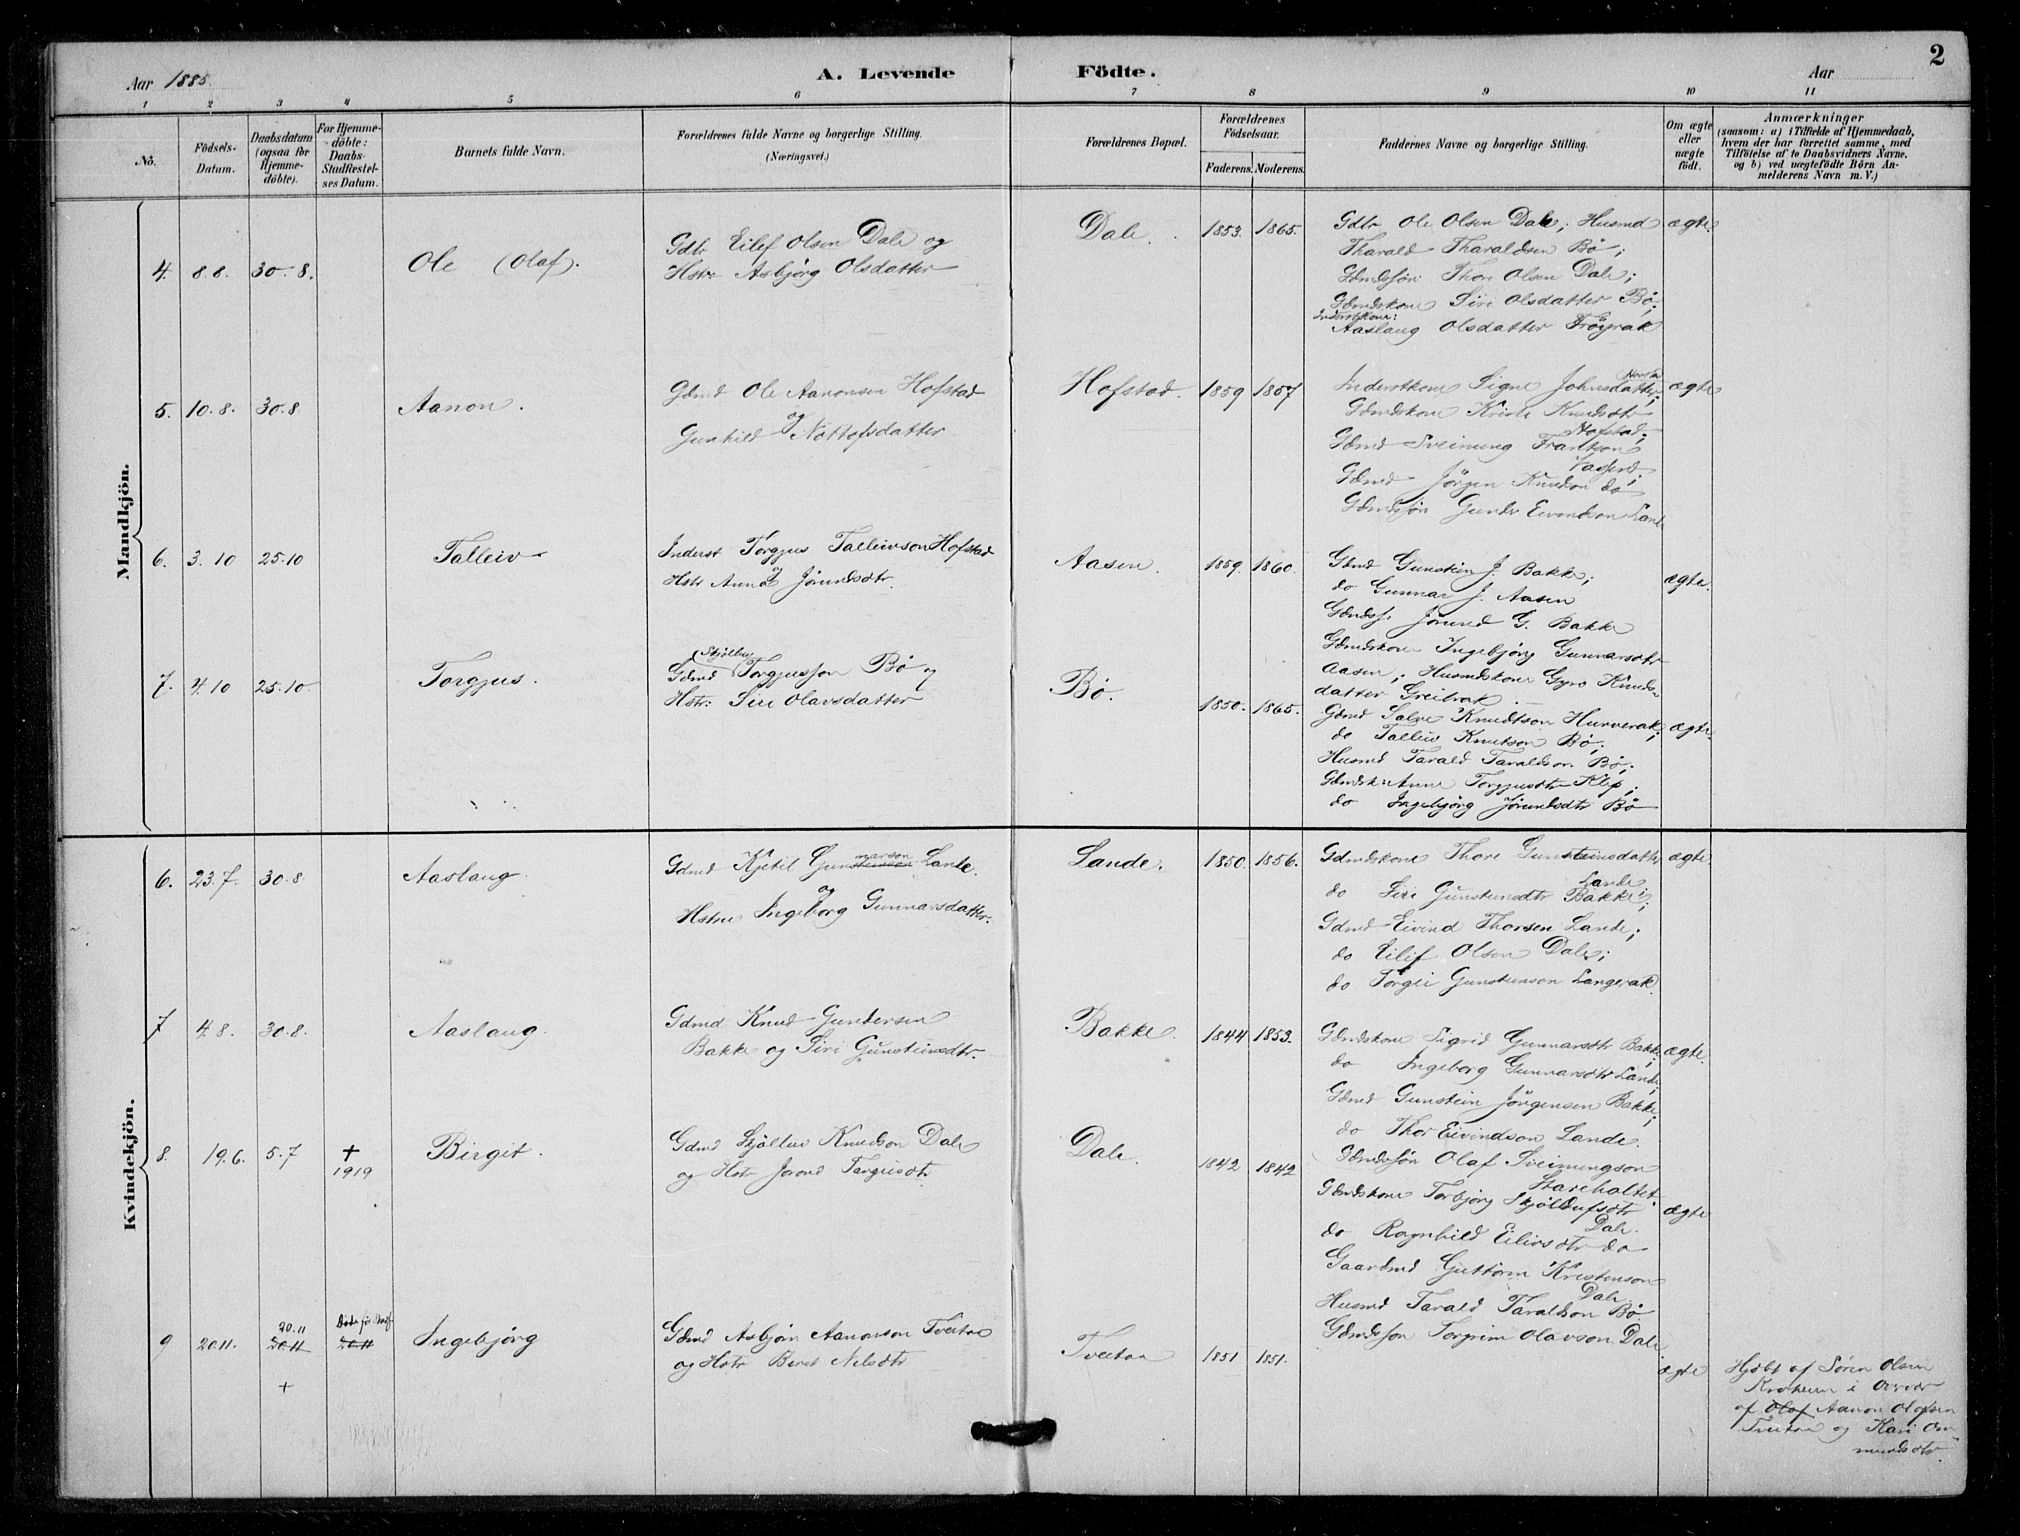 2
Aar 1885.
A. Levende
Födte.
Aar
1 2 3 4 5 6 7 8 9 10 11
No.
Födsels-Datum.
Daabsdatum (ogsaa for Hjemme-döbte).
For Hjemme-döbte: Daabs-Stadfæstel-ses Datum.
Barnets fulde Navn.
Forældrenes fulde Navne og borgerlige Stilling.
(Næringsvei.)
Forældrenes Bopæl.
Forældrenes Födselsaar.
Faderens. Moderens.
Faddernes Navne og borgerlige Stilling.
Om ægte eller uægte födt.
Anmærkninger
(saasom: a) i Tilfælde af Hjemmedaab,
hvem der har forrettet samme, med
Tilföielse af to Daabsvidners Navne,
og b) ved uægtefödte Börn An-
melderens Navn m. V.)
Mandkjön.
4. 8.8. 30.8. Ole (Olaf).
Gdbr Eilef Olsen Dale og
Hstr: Asbjörg Olsdatter
Dale. 1853. 1865.
Gdbr Ole Olsen Dale; Husmd
Tharald Tharaldsen Bö;
Gdmdssön Thore Olsen Dale;
Gdmdskone Siri Olsdatter Bö;
Inderstkone:
Aaslaug Olsdatter Fröyrak
ægte.
5. 10.8. 30.8 Aanon.
Gdmd Ole Aanonsen Hofstad
og
Gunhild Nottofsdatter
Hofstad. 1859 1857
Inderstkone Signe Johnsdatter
Gdmdskone Knudsdtr
Hofstad;
Gdmd Sveinung Frantson
Gdmd Jörgen Knudson do
Gdmdssön Gunder Eivindson Lande
ægte
6. 3.10 25.10 Talleiv
Inderst Torgjus Talleivson Hofstad
Hstr Anna Jörundsdtr.
Aasen. 1859. 1860.
Gdmd Gunstein J. Bakke;
do Gunnar J. Aasen
Gdmdss. Jörund G. Bakke
Gdmdskone Ingebjörg Gunnarsdtr
Aasen, Husmdskone Gyro Knuds-
datter Greibrak
ægte.
7. 4.10 25.10 Torgjus.
Gdmd Torgjussön Bö og
Hstr: Siri Olavsdatter
Bö. 1850. 1865.
Gdmd Salve Knudtson Hurverak;
do Talleiv Knutson Bö;
Husmd Tarald Taraldson Bö;
Gdmdsk: Anne Torgjusdtr Klep;
do Ingebjörg Jörundsdtr Bö
ægte.
Kvindekjön.
6. 23.7. 30.8. Aaslaug.
Gdmd Kjetil Gunnarson Lande.
og
Hstru Ingeborg Gunnarsdatter.
Lande. 1850. 1856.
Gdmdskone Thore Gunsteinsdatter
Lande
do Siri Gunsteinsdtr Bakke;
Gdmd Eivind Thorsen Lande;
do Eilif Olsen Dale;
do Torgei Gunsteinson Langerak.
ægte
7 4.8. 30.8. Aaslaug.
Gdmd Knud Gundersen
Bakke og Siri Gunsteinsdtr.
Bakke. 1844 1853.
Gdmdskone Sigrid Gunnarsdtr Bakke;
do Ingeborg Gunnarsdtr Lande;
Gdmd Gunstein Jörgensen Bakke;
do Thor Eivindson Lande.
ægte.
8. 19.6. 5.7 + 1919 Birgit.
Gdmd Skjölluv Knudson Dale
og Hstr Jorond Targusdtr.
Dale. 1842 1842
Gdmdssön Olaf Sveinungson
Stareholtet.
Gdmdskone Torbjörg Skjöllufsdtr
Dale.
do Ragnhild Eilivsdtr do
Gaardmd Guttorm Kristenson
Dale.
Husmd Tarald Taraldson Bö
Gdmdssön Torgrim Olavson Dale.
ægte
9 20.11. 20.11 20.11 + 20.11 Ingebjörg
Gdmd Asbjörn Aanonson Tveitaa
og Hstr Beret Nilsdtr
Tveitaa 1851 1851.
ægte
Hjdbt af Sören Olsen
i
af Olaf Aanon Olafsen
Tveitaa og Kari Om-
mundsdtr.